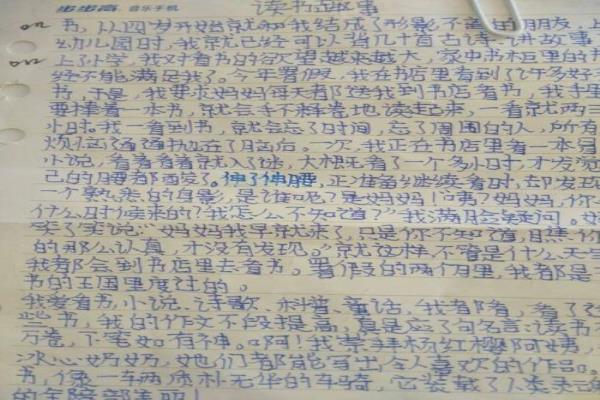 步步高 音乐手机
读书的故事
书,从四岁开始就和我结成了形影不离的朋友。上
幼儿园时,我就已经可以背几十首古诗,讲故事
上了小学,我对看书的欲望越来越大,家中书柜里的书
经不能满足我了。今年暑假,我在书店里看到了许多好
书,于是,我要求妈妈每天都送我到书店看书,我手里
要捧着一本书,就会手不释卷地读起来,一看就两三
小时。我一看到书,就会忘了时间,忘了周围的人,所有
烦恼通通抛在了脑后。一次,我正在书店里看一本
小说,看着看着就入了迷,大概看了一个多小时,才发
己的腰都酸了。伸了伸腰,正准备继续看时,却发现
一个熟悉的身影,是谁呢?是妈妈!"咦?妈妈,你
什么时候来的?我怎么不知道?"我满脸疑问。
笑了笑说:"妈妈我早就来了,只是你不知道,瞧你
的那么认真,才没有发现。"就这样,不管是什么天
我都会到书店里去看书。暑假的两个月里,我都是
书的王国里度过的。
我爱看书,小说、诗歌、科普、童话,我都看,看了
些书,我的作文不段提高,真是应了句名言:读书
万卷,下笔如有神。啊!我崇拜杨红樱阿姨,
冰心奶奶,她们都能写出令人喜欢的作品。
书,像一车两质朴无华的车骑,它装载了人类
的